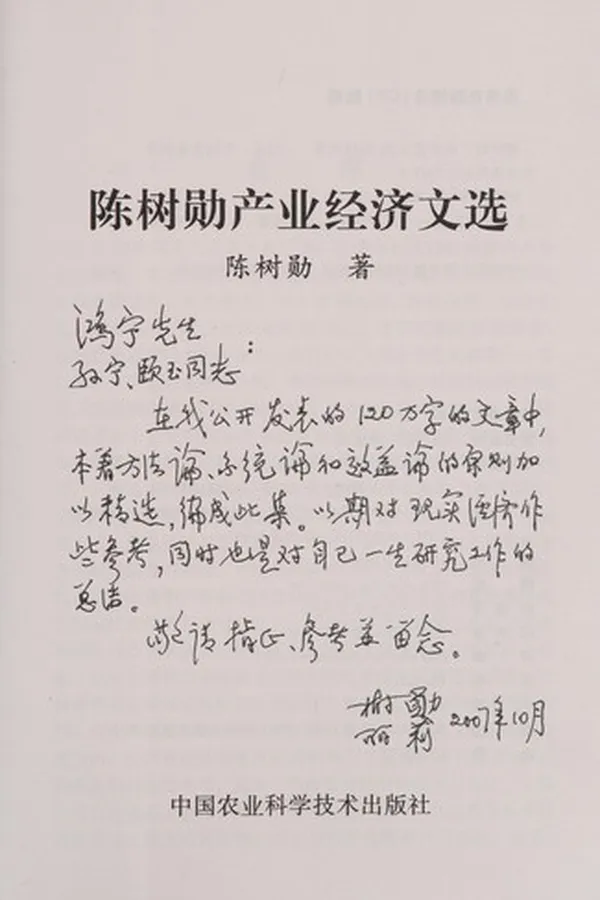 陈树勋产业经济文选
陈树勋 著
鸿宁先生
孙宁、颐玉同志：
在我公开发表的120万字的文章中，
本着方法论、系统论和效益论的原则加
以精选，编成此集。以期对现实经济作
些参考，同时也是对自己一生研究工作的
总结。
敬请指正、参考并留念。
树勋
丽莉 2007年10月
中国农业科学技术出版社